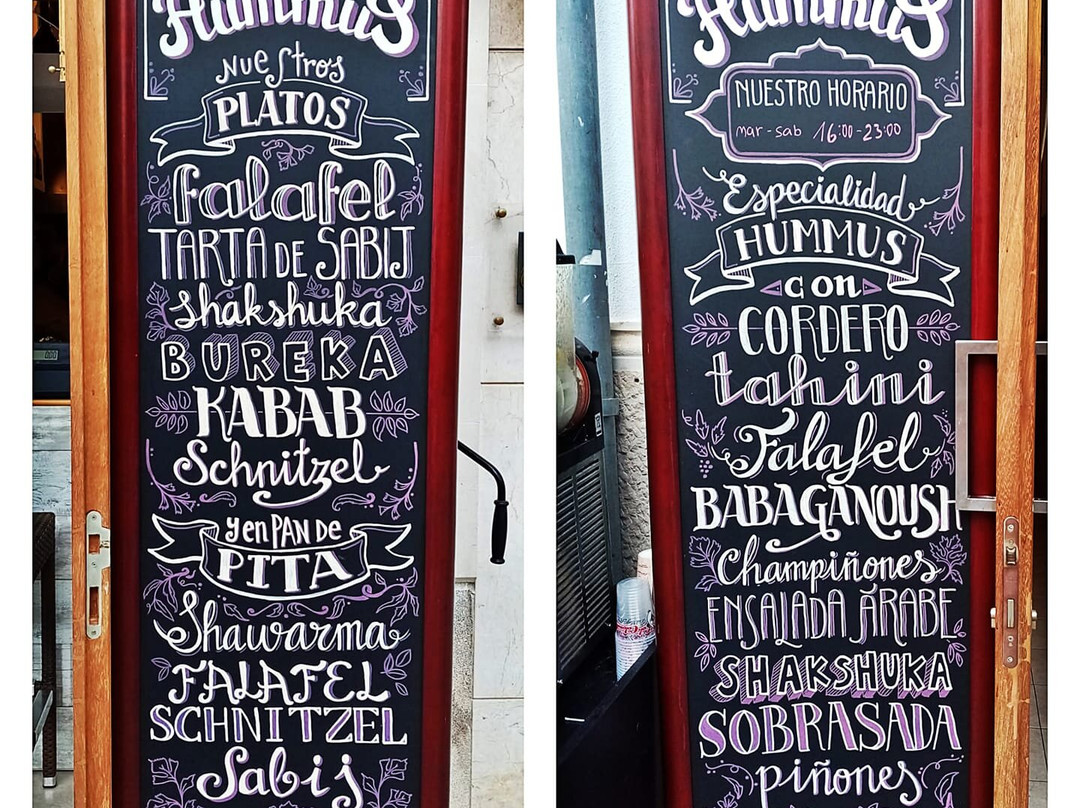 Hummus
Nuestros
PLATOS
falafel
TARTA DE SABIJ
shakshuka
BUREKA
KABAB
Schnitzel
y en PAN DE
PITA
Shawarma
FALAFEL
SCHNITZEL
Sabij
Hummus
NUESTRO HORARIO
mar-sab 16:00-23:00
Especialidad
HUMMUS
con
CORDERO
tahini
Falafel
BABAGANOUSH
Champiñones
ENSALADA ÁRABE
SHAKSHUKA
SOBRASADA
piñones